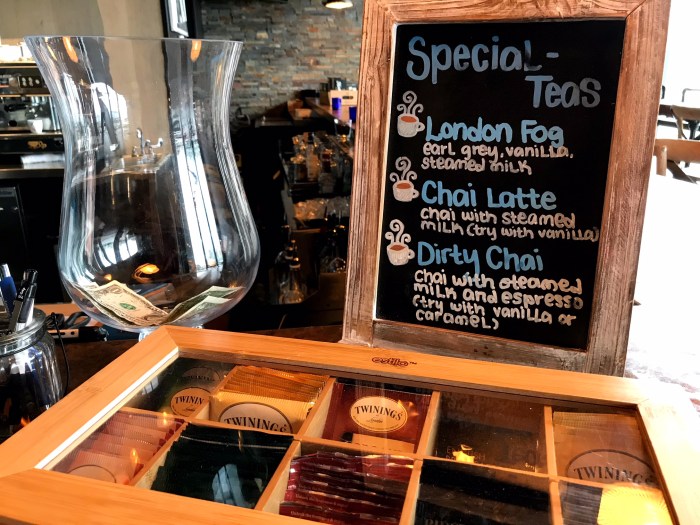 Special-
Teas
London Fog
earl grey, vanilla,
steamed milk
Chai Latte
chai with steamed
milk (try with vanilla)
Dirty Chai
Chai with steamed
milk and espresso
(try with vanilla or
caramel)
estilo™
TWININGS
TWININGS
TWININGS
TWININGS